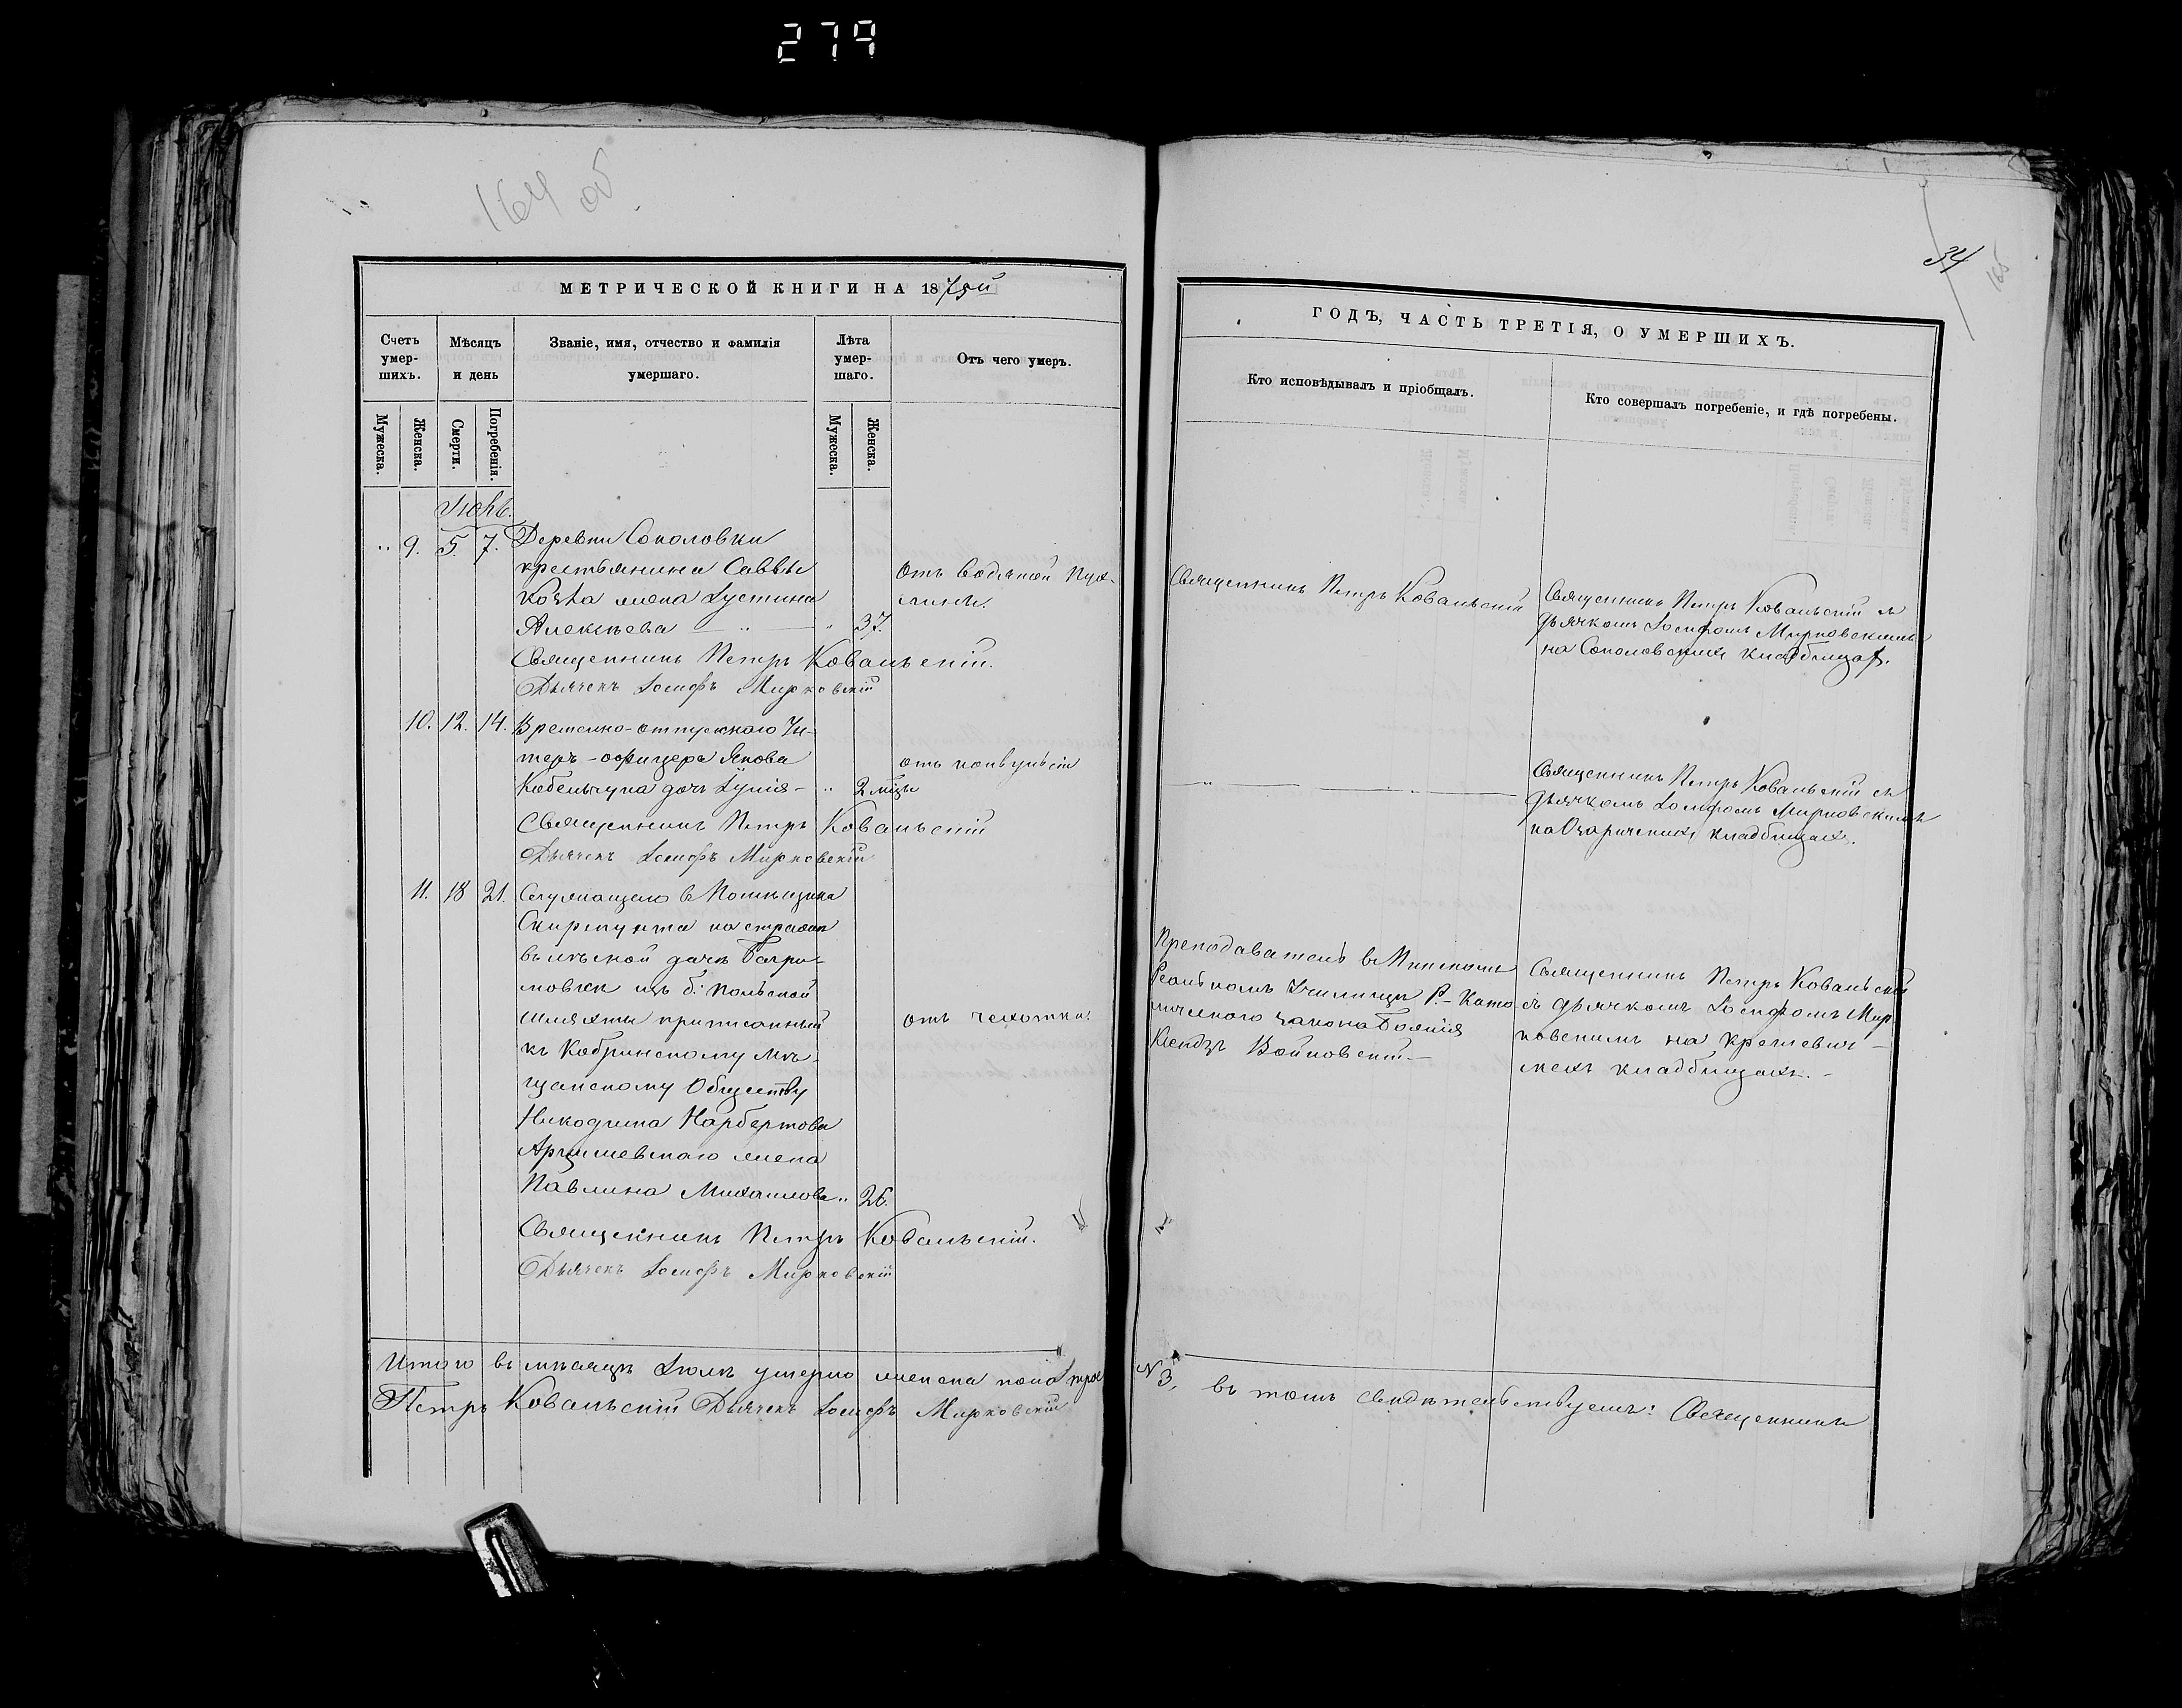 279
164 об.
34
165
МЕТРИЧЕСКОЙ КНИГИ НА 1875й
ГОДЪ, ЧАСТЬ ТРЕТІЯ, О УМЕРШИХЪ.
Счетъ умер-шихъ.
Мѣсяцъ и день
Званіе, имя, отчество и фамилія умершаго.
Лѣта умер-шаго.
Отъ чего умеръ.
Кто исповѣдывалъ и пріобщалъ.
Кто совершалъ погребеніе, и гдѣ погребены.
Мужеска.
Женска.
Смерти.
Погребенія.
Мужеска.
Женска.
" 9. 5. 7. Деревни Соколовки
крестьянина Саввы
жена Іустина
Алексѣева — " — " 37.
Отъ водяной пух-
лины.
Священникъ Петръ Ковальскій
Священникъ Петръ Ковальскій съ
дьячкомъ Іосифомъ Мирковскимъ
на Соколовскихъ кладбищахъ.
Священникъ Петръ Ковальскій.
Дьячекъ Іосифъ Мирковскій
10. 12. 14. Временно-отпускнаго Ун-
теръ-офицера Якова
Кобельчука дочь Іулія - " 2 мѣсц
отъ конвульсіи
Священникъ Петръ Ковальскій съ
дьячкомъ Іосифомъ Мирковскимъ
на Озаричскихъ кладбищахъ.
Священникъ Петръ Ковальскій
Дьячекъ Іосифъ Мирковскій
11. 18 21. Служащаго в Помѣщика
Скирмунта на
въ лѣсной дачѣ
изъ б. Польской
шляхты приписанный
къ Кобринскому мѣ-
щанскому Обществу
Никодима Нарбертова
Арцишевскаго жена
Павлина Михаилова " 26.
отъ чахотки.
Преподаватель в Минскомъ
Реальномъ Училищѣ Р.-Като-
лическаго закона Божія
Ксендзъ Войновскій.—
Священникъ Петръ Ковальскій
съ дьячкомъ Іосифомъ Мир-
ковскимъ на
кладбищахъ.-
Священникъ Петръ Ковальскій.
Дьячекъ Іосифъ Мирковскій
Итого въ мѣсяцѣ умерло женска пола трое № 3, въ томъ свидѣтельствуемъ: Священникъ
Петръ Ковальскій Дьячекъ Іосифъ Мирковскій